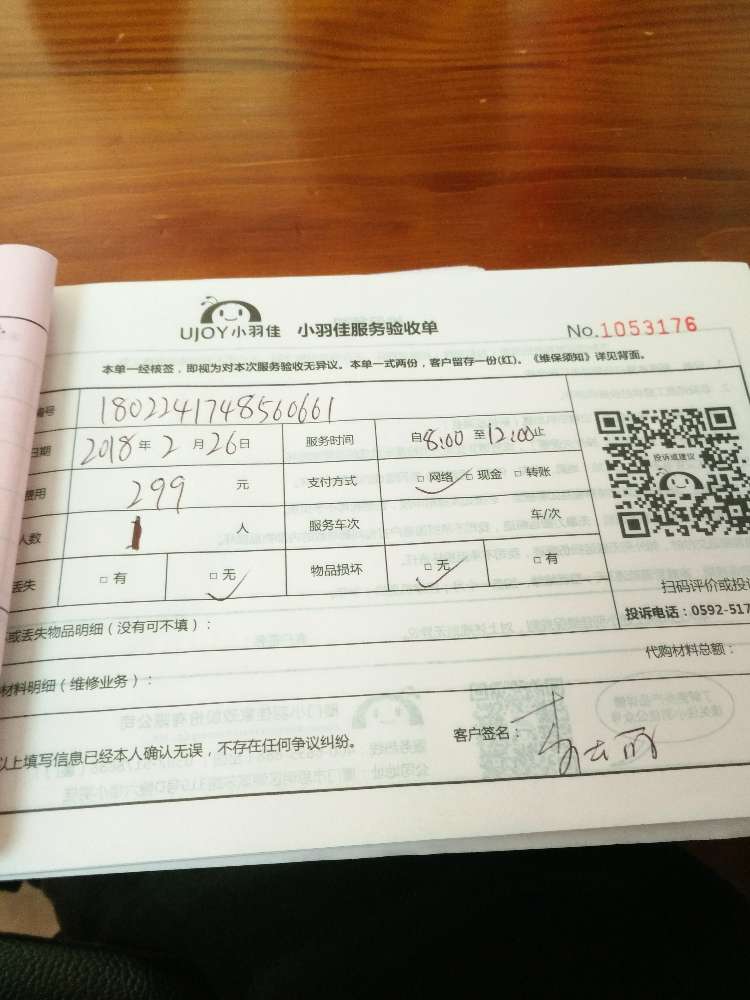 UJOY小羽佳 小羽佳服务验收单 No.1053176
本单一经核签，即视为对本次服务验收无异议。本单一式两份，客户留存一份(红)。《维保须知》详见背面。
编号 1802241748560661
日期 2018年2月26日 服务时间 自8:00至12:00止
费用 299 元 支付方式 □网络 □现金 □转账
人数 1 人 服务车次 车/次
丢失 □有 □无 物品损坏 □无 □有
投诉或建议
扫码评价或投诉
投诉电话：0592-517
或丢失物品明细（没有可不填）：
代购材料总额：
材料明细（维修业务）：
以上填写信息已经本人确认无误，不存在任何争议纠纷。 客户签名：